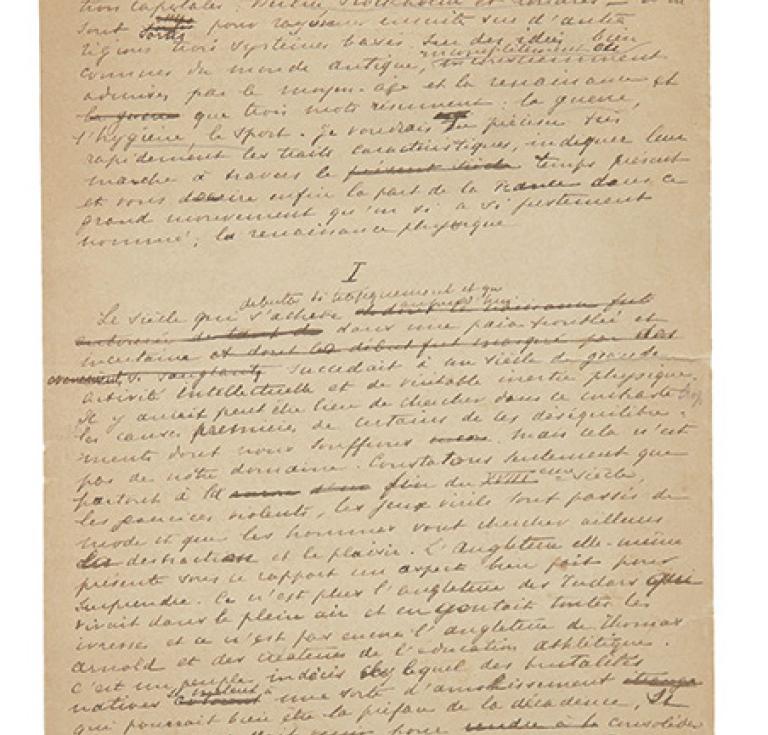 trois capitales : Berlin, Stockholm et Londres
sont sortis pour rayonner ensuite sur d'autres
régions trois systèmes basés sur des idées bien
connues du monde antique, incomplètement ou inconsciemment
admises par le moyen-âge et la renaissance et
la guerre que trois mots résument : la guerre,
l'hygiène, le sport. Je voudrais en préciser
rapidement les traits caractéristiques, indiquer leur
marche à travers le présent siècle temps présent
et vous décrire enfin la part de la France dans ce
grand mouvement qu'on a si justement
nommé, la renaissance physique
I
débutta si
Le siècle qui s'achève fut
dans une paix troublée et
incertaine et dont le début fut marqué par des
évènements si sanglants, succédait à un siècle de grande
activité intellectuelle et de véritable inertie physique.
Il y aurait peut être lieu de chercher dans ce contraste trop
les causes premières de certains de ces déséquilibre-
ments dont nous souffrons. mais cela n'est
pas de notre domaine. Constatons seulement que
partout à la fin du XVIIIeme siècle,
les exercices violents, les jeux virils sont passés de
mode et que les hommes vont chercher ailleurs
la distraction et le plaisir. L'Angleterre elle-même
présente sous ce rapport un aspect bien fait pour
surprendre. Ce n'est plus l'angleterre des Tudors qui
vivait dans le plein air et en goutait toutes les
ivresses et ce n'est pas encore l'angleterre de Thomas
Arnold et des créateurs de l'éducation athlétique.
C'est un peuple indécis chez lequel des brutalités
natives mêlent à une sorte d'amollissement étrange
qui pourrait bien être la préface de la décadence, si
pour rendre à la consolider